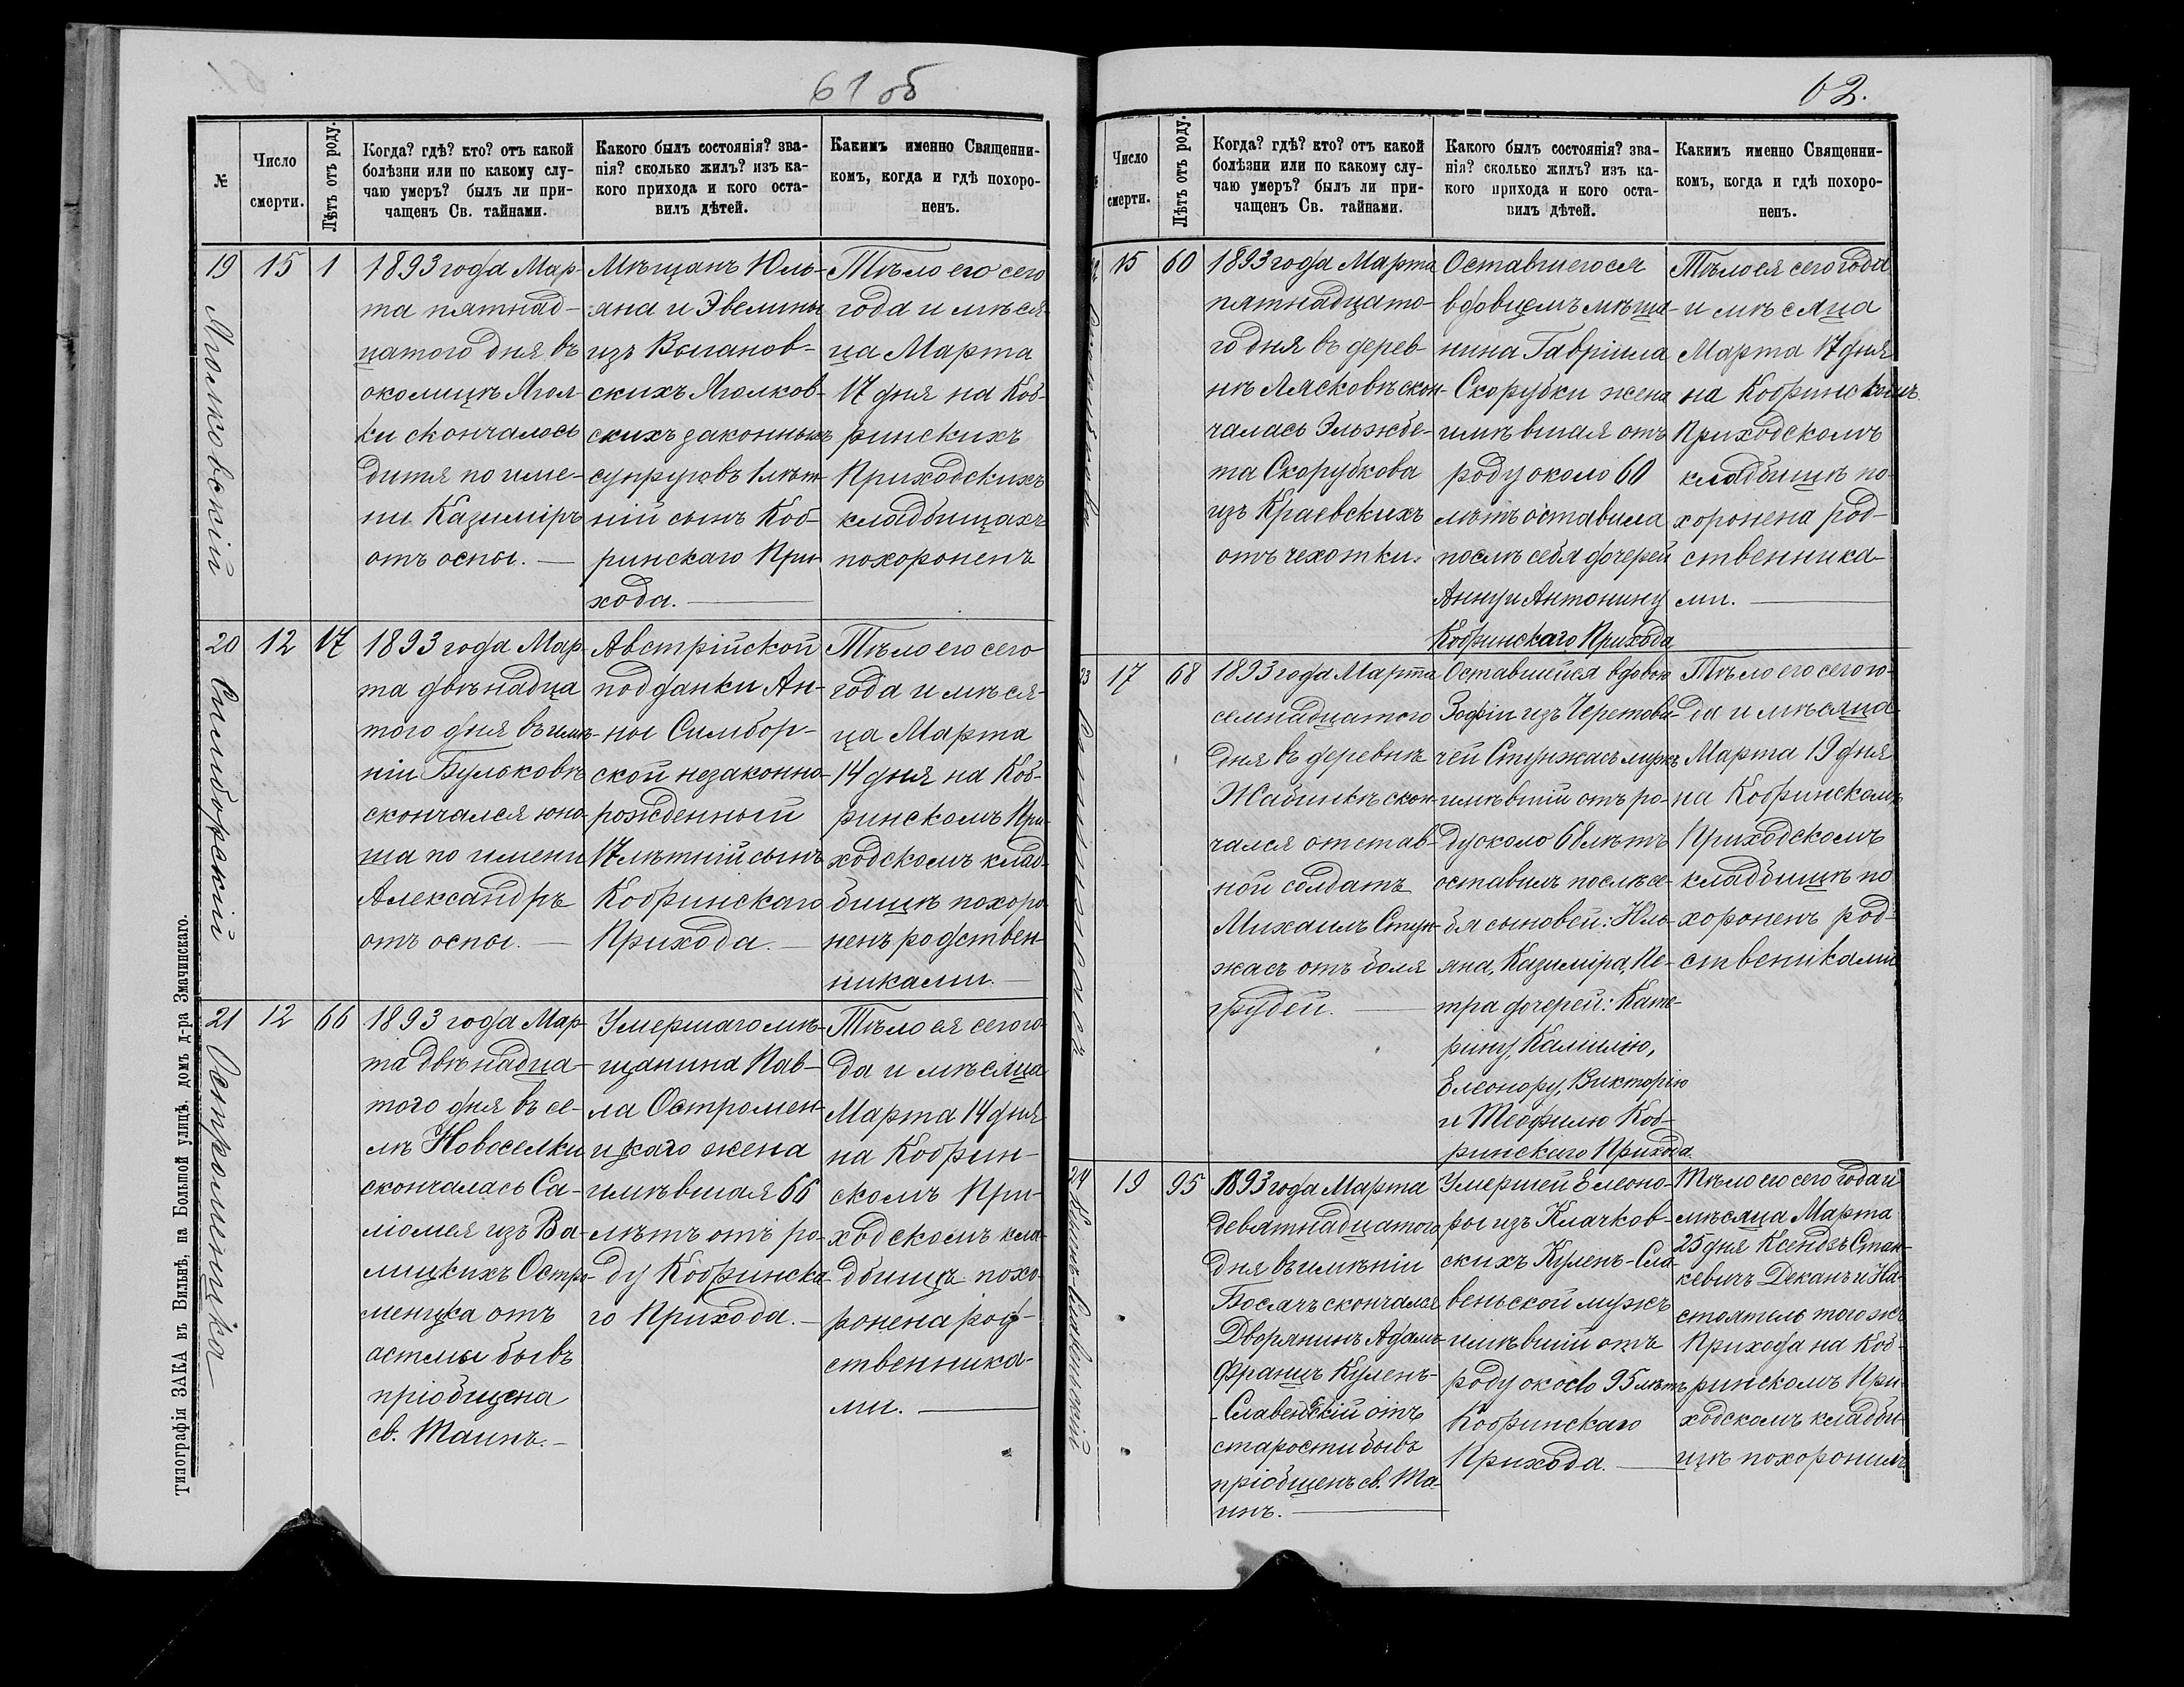 61 об
№
Число
смерти.
Лѣтъ отъ роду.
Когда? гдѣ? кто? отъ какой
болѣзни или по какому слу-
чаю умеръ? былъ ли при-
чащенъ Св. тайнами.
Какого былъ состоянія? зва-
нія? сколько жилъ? изъ ка-
кого прихода и кого оста-
вилъ дѣтей.
Какимъ именно Священни-
комъ, когда и гдѣ похоро-
ненъ.
19
15
1
Яголковскій
1893 года Мар-
та пятнад-
цатого дня въ
околицѣ Ягол-
ки скончалось
дитя по име-
ни Казиміръ
отъ оспы. —
Мѣщанъ Юль-
яна и Эвелины
изъ Выганов-
скихъ Яголков-
скихъ законныхъ
супруговъ 1 лѣт-
ній сынъ Коб-
ринскаго При-
хода. —
Тѣло его сего
года и мѣся-
ца Марта
17 дня на Коб-
ринскихъ
Приходскихъ
кладбищахъ
похороненъ
20
12
17
Симборскій
1893 года Мар-
та двѣнадца
того дня въ имѣ-
ніи Бульковѣ
скончался юно-
ша по имени
Александръ
отъ оспы. —
Австрійской
подданки Ан-
ны Симбор-
ской незаконно-
рожденный
17 лѣтній сынъ
Кобринскаго
Прихода. —
Тѣло его сего
года и мѣся-
ца Марта
14 дня на Коб-
ринскомъ При-
ходскомъ клад-
бищѣ похоро-
ненъ родствен-
никами. —
21
12
66
Остроменцка
1893 года Мар-
та двѣнадца-
того дня въ се-
лѣ Новоселки
скончалась Са-
ломея изъ Ва-
лицкихъ Остро-
менцка отъ
астмы бывъ
пріобщена
св. Таинъ. —
Умершаго мѣ-
щанина Пав-
ла Остромен-
цкаго жена
имѣвшая 66
лѣтъ отъ ро-
ду Кобринска-
го Прихода. —
Тѣло ея сего го-
да и мѣсяца
Марта 14 дня
на Кобрин-
скомъ При-
ходскомъ кла-
дбищѣ похо-
ронена род-
ственника-
ми. —
Типографія ЗАКА въ Вильнѣ, на Большой улицѣ, домъ д-ра Змачинскаго.
62.
Число
смерти.
Лѣтъ отъ роду.
Когда? гдѣ? кто? отъ какой
болѣзни или по какому слу-
чаю умеръ? былъ ли при-
чащенъ Св. тайнами.
Какого былъ состоянія? зва-
нія? сколько жилъ? изъ ка-
кого прихода и кого оста-
вилъ дѣтей.
Какимъ именно Священни-
комъ, когда и гдѣ похоро-
ненъ.
15
60
1893 года Марта
пятнадцато-
го дня въ дерев-
нѣ Лясковѣ скон-
чалась Эльжбе-
та Скорубкова
изъ Краевскихъ
отъ чехотки.
Оставшегося
вдовцемъ мѣща-
нина Гавріила
Скорубки жена
имѣвшая отъ
роду около 60
лѣтъ оставила
послѣ себя дочерей
Анну и Антонину
Кобринскаго Прихода
Тѣло ея сего года
и мѣсяца
Марта 17 дня
на Кобринскомъ
Приходскомъ
кладбищѣ по-
хоронена род-
ственника-
ми. —
23
17
68
1893 года Марта
семнадцатого
дня въ деревнѣ
Жабинкѣ скон-
чался отстав-
ной солдатъ
Михаилъ Стун-
жасъ отъ боля
грудей. —
Оставшейся вдовою
Зофіи изъ Черетови-
чей Стунжасъ мужъ
имѣвшій отъ ро-
ду около 68 лѣтъ
оставилъ послѣ се-
бя сыновей: Юль-
яна, Казиміра, Пе-
тра дочерей: Кате-
рину, Камилію,
Елеонору, Викторію
и Теофилю Коб-
ринскаго Прихода.
Тѣло его сего го-
да и мѣсяца
Марта 19 дня
на Кобринскомъ
Приходскомъ
кладбищѣ по
хороненъ род-
ственіками
24
19
95
Куленъ-Славенскій
1893 года Марта
девятнадцатого
дня въ имѣніи
Босячъ скончался
Дворянинъ Адамъ-
Францъ Куленъ-
-Славенскій отъ
старости бывъ
пріобщенъ св. Та-
инъ. —
Умершей Елеоно-
ры изъ Клачков-
скихъ Куленъ-Сла-
веньской мужъ
имѣвшій отъ
роду около 95 лѣтъ
Кобринскаго
Прихода. —
Тѣло его сего года и
мѣсяца Марта
25 дня Ксендзъ Стан-
кевичъ Деканъ и На-
стоятель того же
Прихода на Коб-
ринскомъ При-
ходскомъ кладби-
щѣ похоронилъ